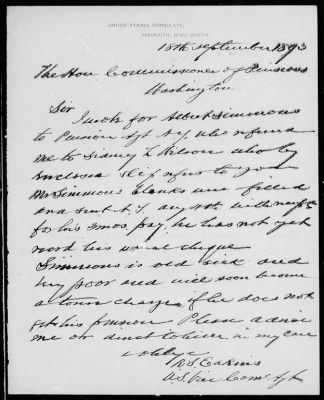 UNITED STATES CONSULATE,
YARMOUTH, NOVA SCOTIA.
18th September 1893
The Hon Commissioner of Pensions
Washington
Sir
I wrote for Albert Simmons
to Pension Agt N.Y. who refered
me to Sidney L Wilson who by
Enclosed slip refers to you
Mr Simmons blanks were filled
and sent N.Y. Aug 4th with
for his 3mos. pay. he has not yet
recd his usual cheque
Simmons is old sick and
very poor and will soon become
a town charge if he does not
get his pension Please advise
me or direct to him in my care
& oblige
R S Eakins
U.S. Vice Coml Agt